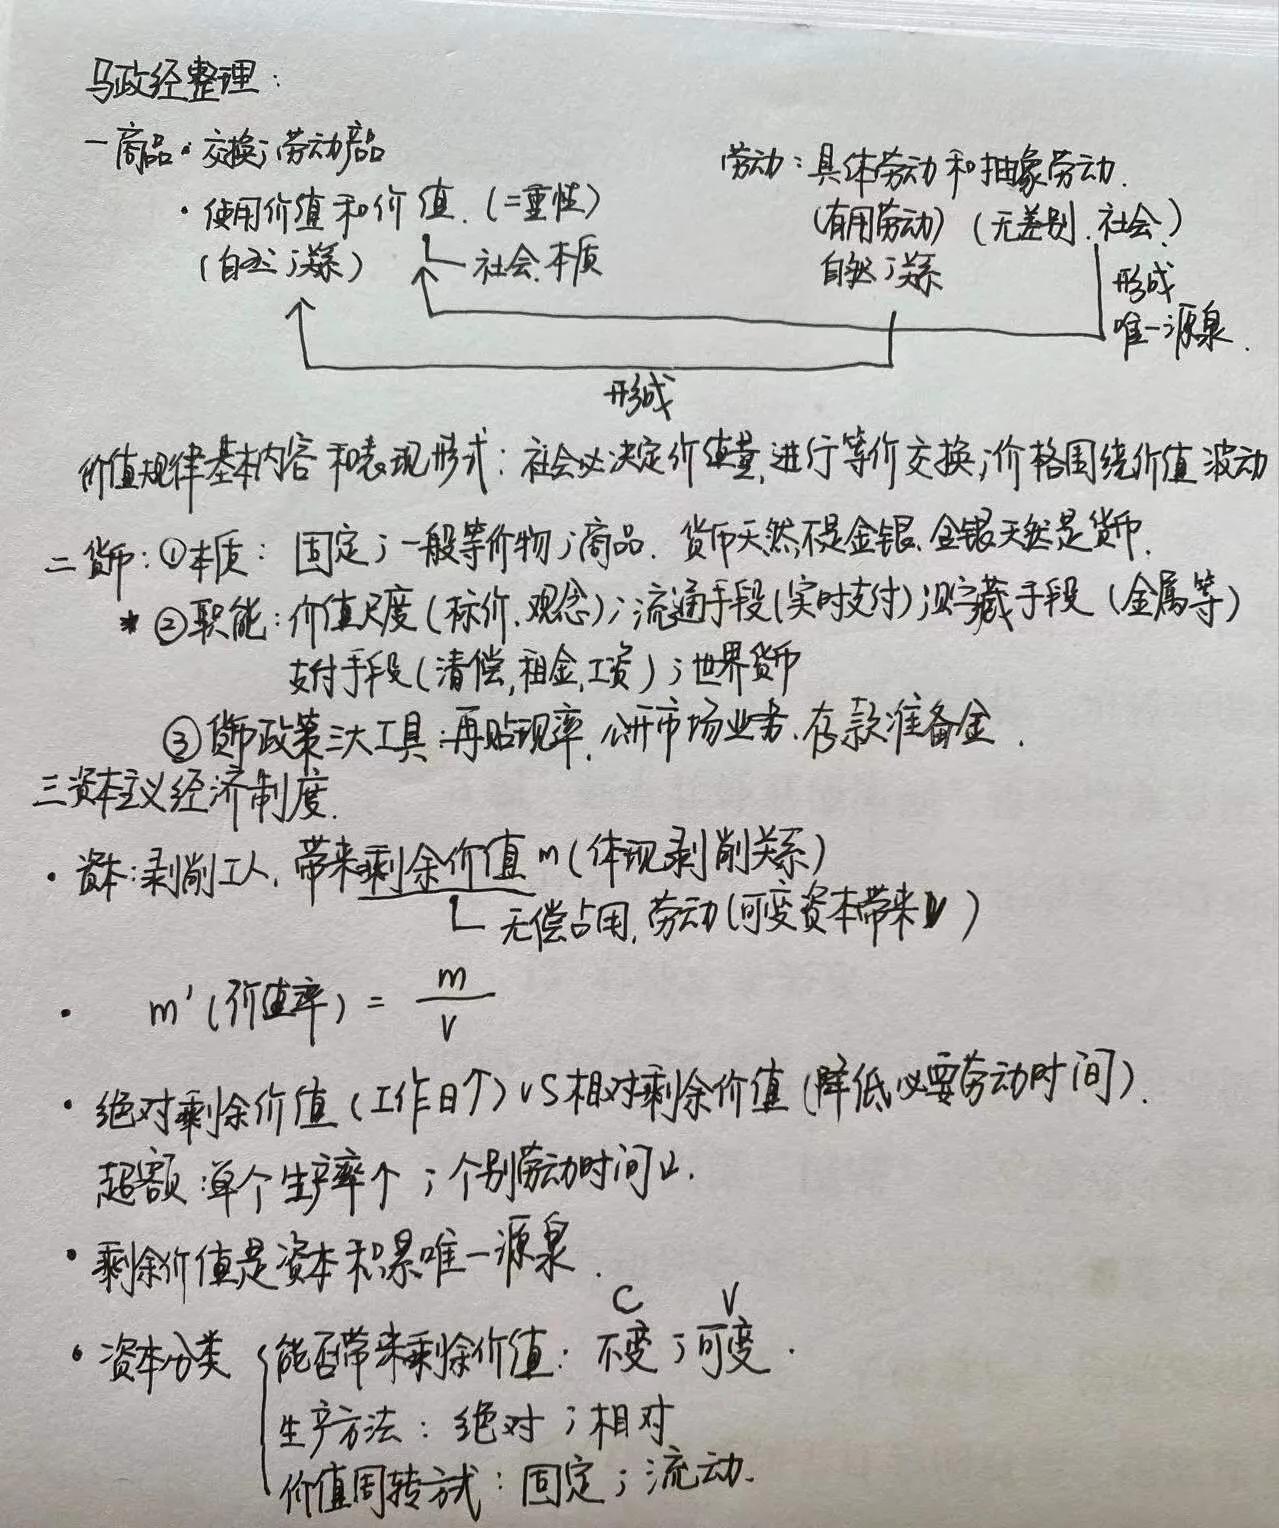 马政经整理:
一商品·交换;劳动产品
·使用价值和价值.(二重性)
(自然;关系)
社会.本质
劳动:具体劳动和抽象劳动.
(有用劳动)(无差别.社会.)
自然;关系
形成
唯一源泉.
形成
价值规律基本内容和表现形式:社会必决定价值量,进行等价交换;价格围绕价值波动
二货币:①本质:固定;一般等价物;商品.货币天然不是金银.金银天然是货币.
*②职能:价值尺度(标价.观念);流通手段(实时支付);贮藏手段(金属等)
支付手段(清偿,租金,工资);世界货币
③货币政策三大工具:再贴现率.公开市场业务.存款准备金.
三资本主义经济制度.
·资本:剥削工人,带来剩余价值m(体现剥削关系)
无偿占用,劳动(可变资本带来V)
· m'(价值率)= m/V
·绝对剩余价值(工作日↑)VS相对剩余价值(降低必要劳动时间).
超额:单个生产率↑;个别劳动时间↓.
·剩余价值是资本积累唯一源泉.
C V
·资本分类{能否带来剩余价值:不变;可变.
生产方法:绝对;相对
价值周转方式:固定;流动.